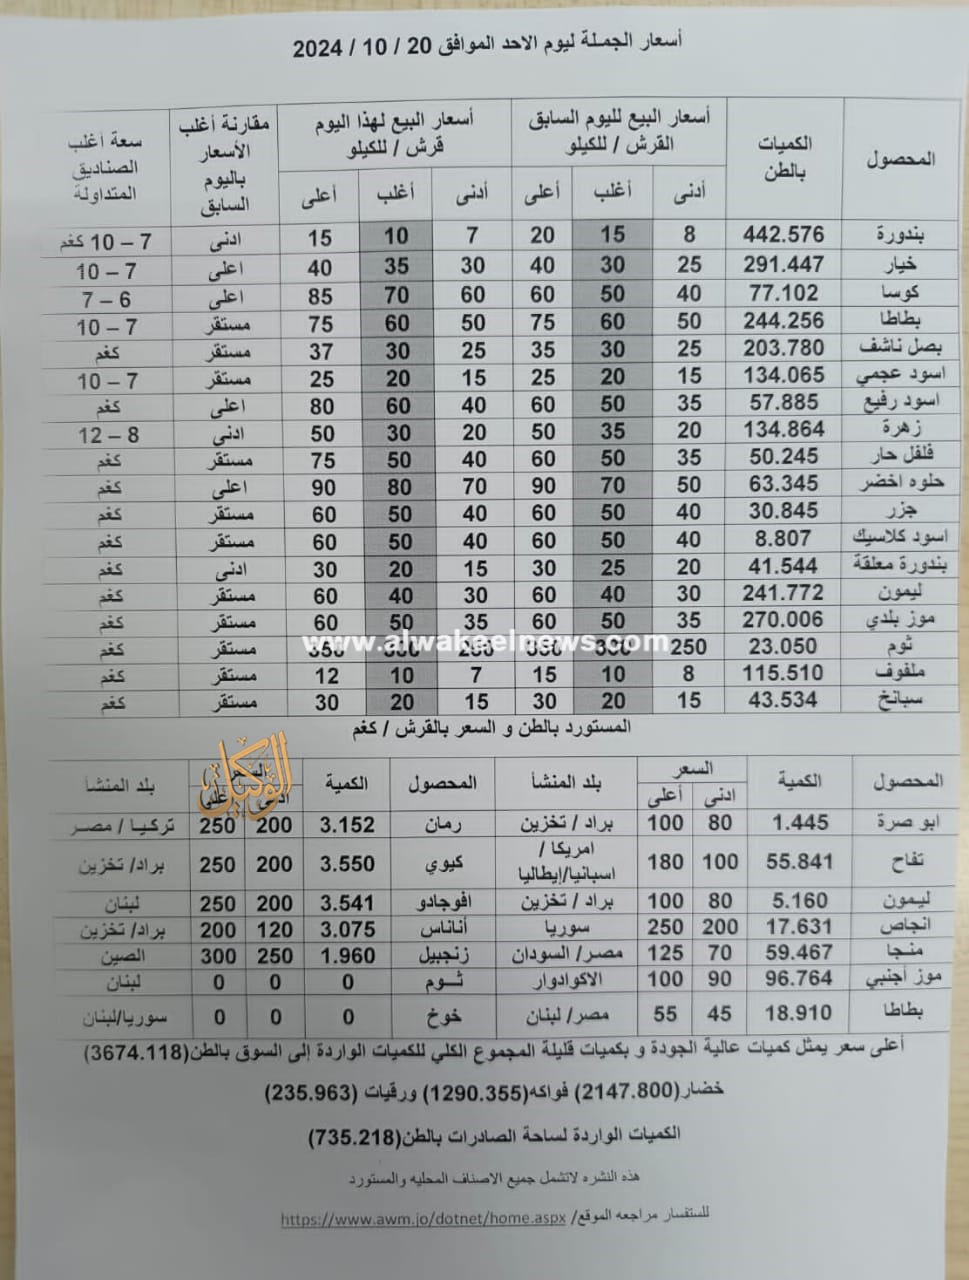 أسعار الجملة ليوم الاحد الموافق 20 / 10 / 2024
المحصول الكميات بالطن أسعار البيع لليوم السابق القرش / للكيلو أسعار البيع لهذا اليوم قرش / للكيلو مقارنة أغلب الأسعار باليوم السابق سعة أغلب الصناديق المتداولة
أدنى أغلب أعلى أدنى أغلب أعلى
بندورة 442.576 8 15 20 7 10 15 ادنى 7 – 10 كغم
خيار 291.447 25 30 40 30 35 40 اعلى 7 – 10
كوسا 77.102 40 50 60 60 70 85 اعلى 6 – 7
بطاطا 244.256 50 60 75 50 60 75 مستقر 7 – 10
بصل ناشف 203.780 25 30 35 25 30 37 مستقر كغم
اسود عجمي 134.065 15 20 25 15 20 25 مستقر 7 – 10
اسود رفيع 57.885 35 50 60 40 60 80 اعلى كغم
زهرة 134.864 20 35 50 20 30 50 ادنى 8 – 12
فلفل حار 50.245 35 50 60 40 50 75 مستقر كغم
حلوه اخضر 63.345 50 70 90 70 80 90 اعلى كغم
جزر 30.845 40 50 60 40 50 60 مستقر كغم
اسود كلاسيك 8.807 40 50 60 40 50 60 مستقر كغم
بندورة معلقة 41.544 20 25 30 15 20 30 ادنى كغم
ليمون 241.772 30 40 60 30 40 60 مستقر كغم
موز بلدي 270.006 35 50 60 35 50 60 مستقر كغم
www.alwakeelnews.com
ثوم 23.050 250 مستقر كغم
ملفوف 115.510 8 10 15 7 10 12 مستقر كغم
سبانخ 43.534 15 20 30 15 20 30 مستقر كغم
المستورد بالطن و السعر بالقرش / كغم
الوكيل
المحصول الكمية السعر بلد المنشأ المحصول الكمية السعر بلد المنشأ
ادنى أعلى ادنى أعلى
ابو صرة 1.445 80 100 براد / تخزين رمان 3.152 200 250 تركيا / مصر
تفاح 55.841 100 180 امريكا / اسبانيا/إيطاليا كيوي 3.550 200 250 براد/ تخزين
ليمون 5.160 80 100 براد / تخزين افوجادو 3.541 200 250 لبنان
انجاص 17.631 200 250 سوريا أناناس 3.075 120 200 براد/ تخزين
منجا 59.467 70 125 مصر/ السودان زنجبيل 1.960 250 300 الصين
موز أجنبي 96.764 90 100 الاكوادوار ثوم 0 0 0 لبنان
بطاطا 18.910 45 55 مصر/ لبنان خوخ 0 0 0 سوريا/لبنان
أعلى سعر يمثل كميات عالية الجودة و بكميات قليلة المجموع الكلي للكميات الواردة إلى السوق بالطن(3674.118)
خضار(2147.800) فواكه(1290.355) ورقيات (235.963)
الكميات الواردة لساحة الصادرات بالطن(735.218)
هذه النشره لاتشمل جميع الاصناف المحليه والمستورد
للستفسار مراجعه الموقع/ https://www.awm.jo/dotnet/home.aspx